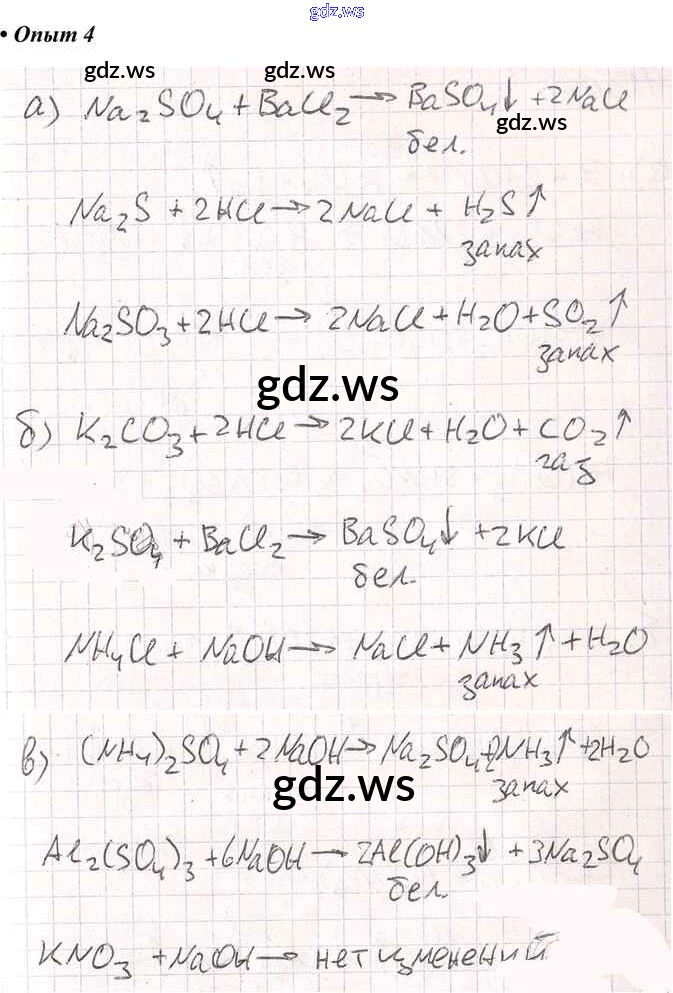 gdz.ws
• Опыт 4
gdz.ws gdz.ws
а) Na₂SO₄ + BaCl₂ → BaSO₄↓ + 2NaCl
gdz.ws
бел.
Na₂S + 2HCl → 2NaCl + H₂S↑
запах
Na₂SO₃ + 2HCl → 2NaCl + H₂O + SO₂↑
запах
gdz.ws
б) K₂CO₃ + 2HCl → 2KCl + H₂O + CO₂↑
газ
K₂SO₄ + BaCl₂ → BaSO₄↓ + 2KCl
бел.
NH₄Cl + NaOH → NaCl + NH₃↑ + H₂O
запах
в) (NH₄)₂SO₄ + 2NaOH → Na₂SO₄ + 2NH₃↑ + 2H₂O
gdz.ws
запах
Al₂(SO₄)₃ + 6NaOH → 2Al(OH)₃↓ + 3Na₂SO₄
бел.
KNO₃ + NaOH → нет изменений